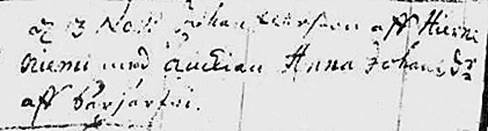 d 3 Nov. Johan Larsson aff Hieta
niemi med Änckian Anna Johans dr
aff Bärjärfwi.